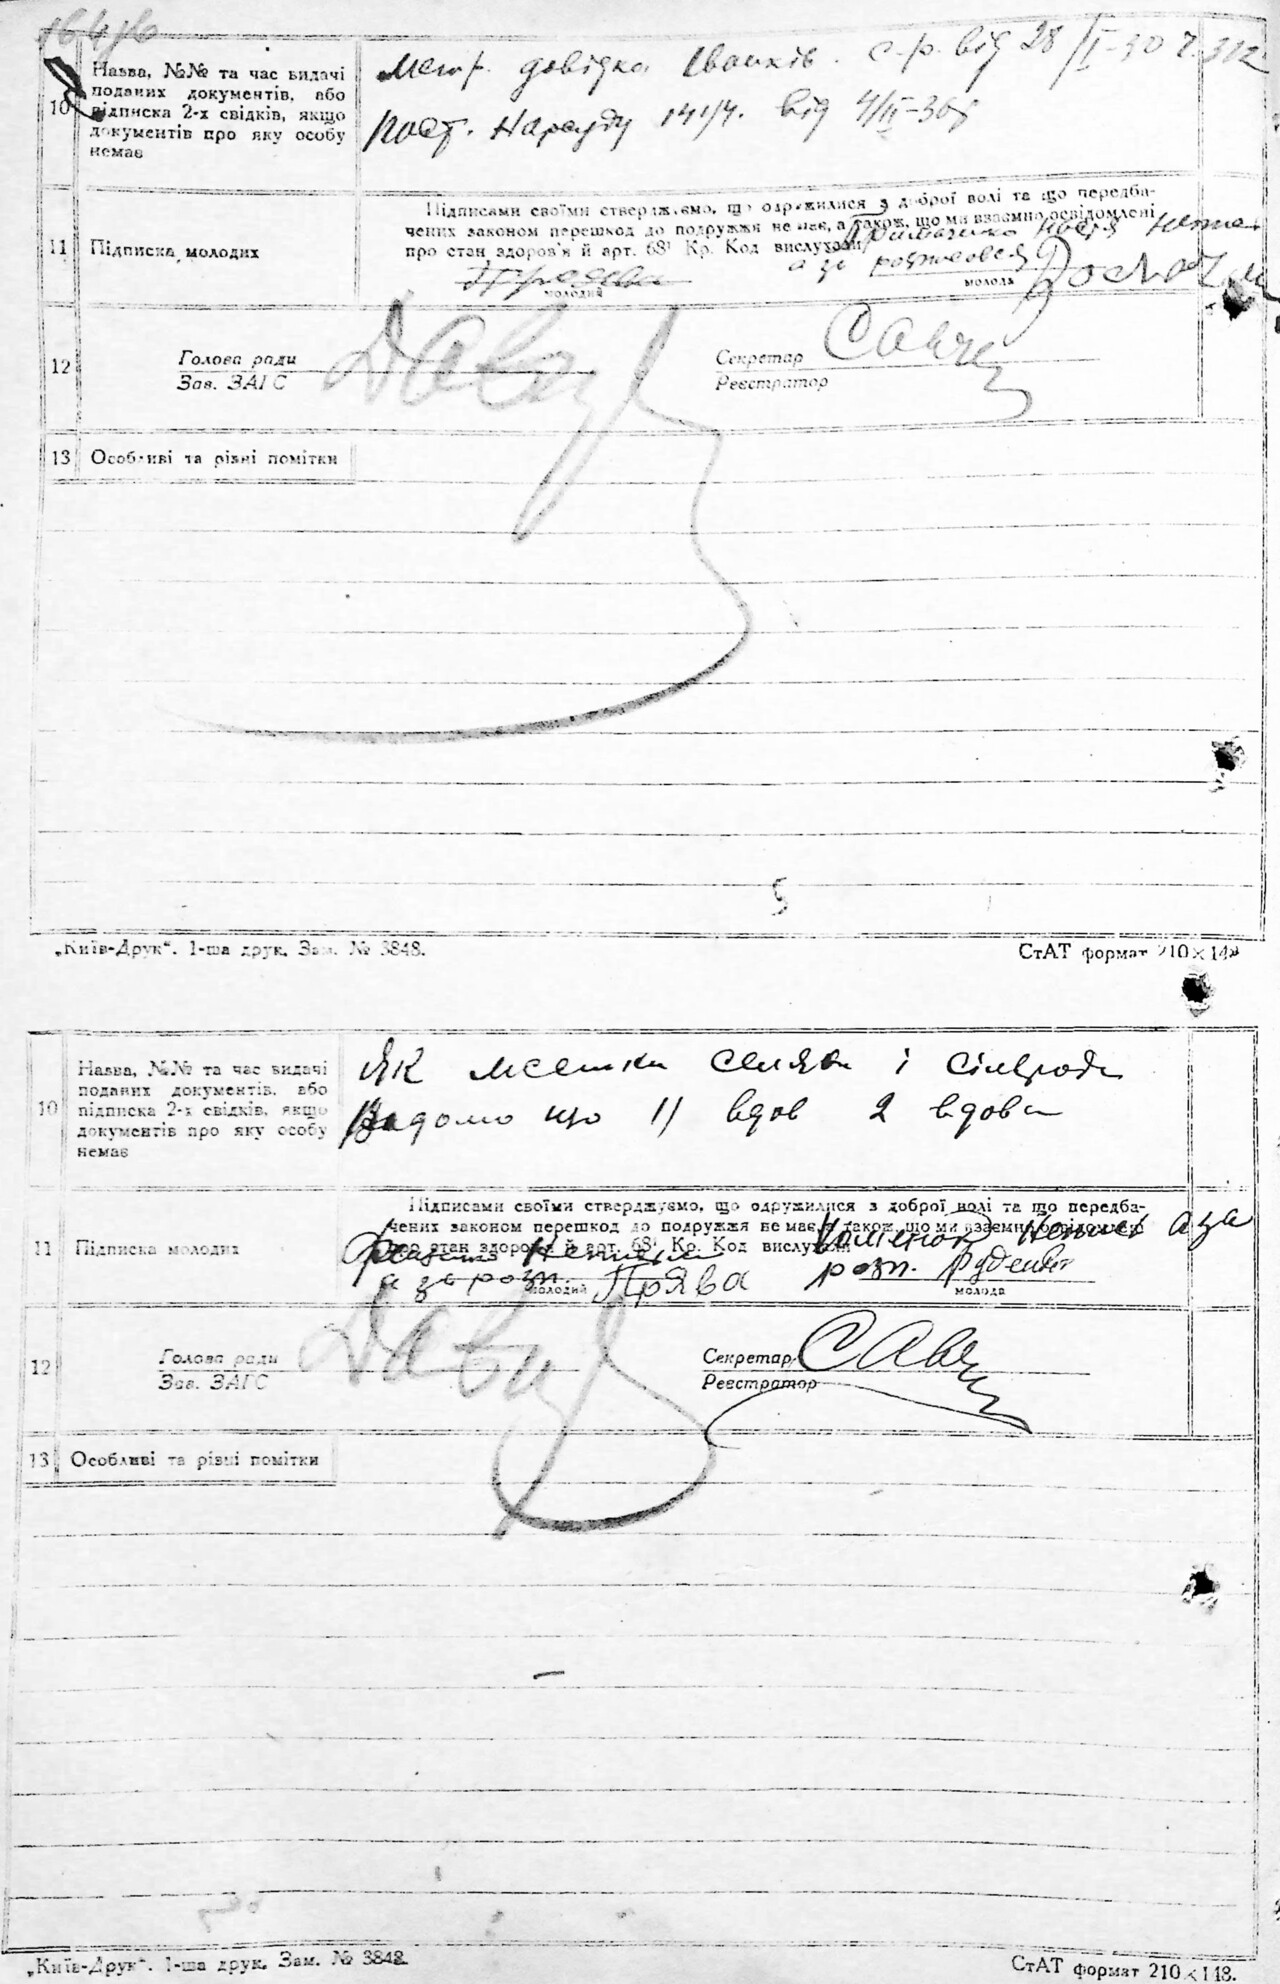 10 Назва, №№ та час видачі
поданих документів, або
підписка 2-х свідків, якщо
документів про яку особу
немає
Метр. довідка с-р. від 28/I-30 ч. 312
пост. Нарсуду від 4/II-30р
11 Підписка молодих
Підписами своїми стверджуємо, що одружилися з доброї волі та що передба-
чених законом перешкод до подружжя немає, а також, що ми взаємно освідомлені
про стан здоров'я й арт. 68¹ Кр. Код вислухали
а за
молодий молода
12 Голова ради Секретар Савч
Зав. ЗАГС Реєстратор
13 Особливі та різні помітки
„Київ-Друк“. 1-ша друк. Зам. № 3848. СтАТ формат 210×148
10 Назва, №№ та час видачі
поданих документів, або
підписка 2-х свідків, якщо
документів про яку особу
немає
Як і сільради
що 1) вдов 2 вдова
11 Підписка молодих
Підписами своїми стверджуємо, що одружилися з доброї волі та що передба-
чених законом перешкод до подружжя немає, а також, що ми взаємно освідомлені
про стан здоров'я й арт. 68¹ Кр. Код вислухали
а за
а за розп. Прява розп. Руденко
молодий молода
12 Голова ради Секретар Савч
Зав. ЗАГС Реєстратор
13 Особливі та різні помітки
„Київ-Друк“. 1-ша друк. Зам. № 3848. СтАТ формат 210×148.